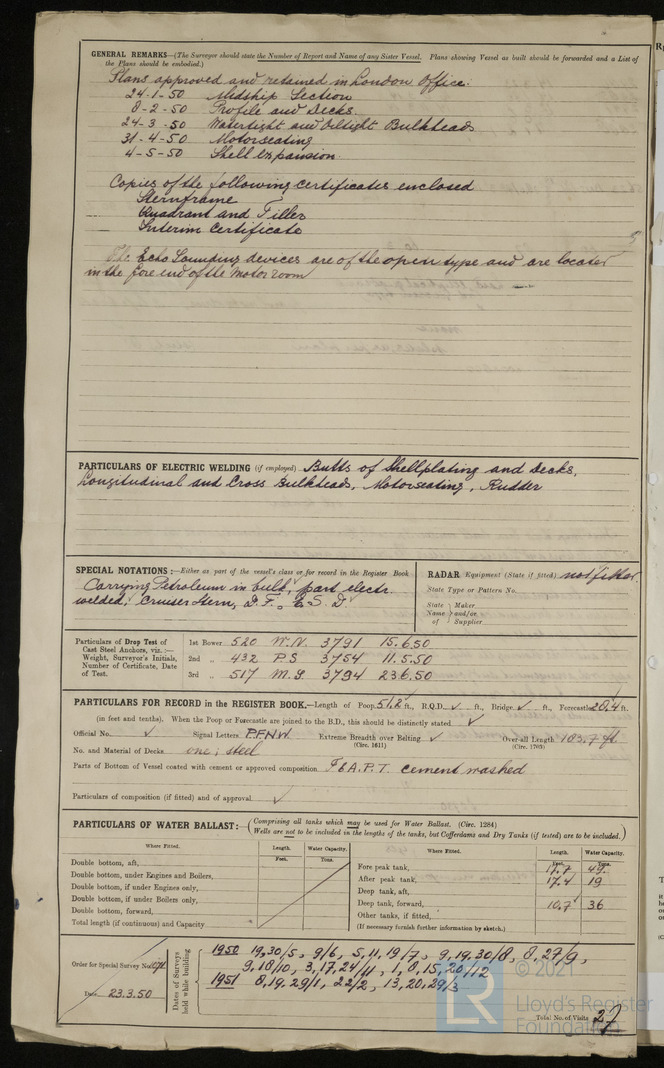 GENERAL REMARKS—(The Surveyor should state the Number of Report and Name of any Sister Vessel. Plans showing Vessel as built should be forwarded and a List of
the Plans should be embodied.)
Plans approved and retained in London Office:
24-1-50 Midship Section
8-2-50 Profile and Decks.
24-3-50 Watertight and Oiltight Bulkheads
31-4-50 Motorseating
4-5-50 Shell expansion.
Copies of the following certificates enclosed
Sternframe
Quadrant and Tiller
Interim Certificate
The Echo Sounding devices are of the open type and are located
in the fore end of the motor room
PARTICULARS OF ELECTRIC WELDING (if employed) Butts of Shellplating and Decks,
Longitudinal and Cross Bulkheads, Motorseating, Rudder
SPECIAL NOTATIONS:—Either as part of the vessel's class or for record in the Register Book
Carrying Petroleum in bulk, part electr.
welded, Cruiser Stern, D.F., E.S.D
RADAR Equipment (State if fitted) not fitted.
State Type or Pattern No.
State Name of Maker and/or Supplier
Particulars of Drop Test of Cast Steel Anchors, viz.:— Weight, Surveyor's Initials, Number of Certificate, Date of Test.
1st Bower 520 W.N. 3791 15.6.50
2nd „ 432 P.S 3754 11.5.50
3rd „ 517 M.S. 3794 23.6.50
PARTICULARS FOR RECORD in the REGISTER BOOK.—Length of Poop 51.2 ft., R.Q.D. ✓ ft., Bridge ✓ ft., Forecastle 20.4 ft.
(in feet and tenths). When the Poop or Forecastle are joined to the B.D., this should be distinctly stated ✓
Official No. ✓ Signal Letters PFNW Extreme Breadth over Belting ✓ Over-all Length 183.7 ft
(Circ. 1611) (Circ. 1703)
No. and Material of Decks one; steel
Parts of Bottom of Vessel coated with cement or approved composition F & A.P.T. cement washed
Particulars of composition (if fitted) and of approval ✓
PARTICULARS OF WATER BALLAST:— (Comprising all tanks which may be used for Water Ballast. (Circ. 1284)
Wells are not to be included in the lengths of the tanks, but Cofferdams and Dry Tanks (if tested) are to be included.)
Where Fitted. Length. Water Capacity.
Feet. Tons.
Double bottom, aft,
Double bottom, under Engines and Boilers,
Double bottom, if under Engines only,
Double bottom, if under Boilers only,
Double bottom, forward,
Total length (if continuous) and Capacity
Where Fitted. Length. Water Capacity.
Feet. Tons.
Fore peak tank, 17.7 49
After peak tank, 17.4 19
Deep tank, aft,
Deep tank, forward, 10.7 36
Other tanks, if fitted,
(If necessary furnish further information by sketch.)
Order for Special Survey No.
Date 23.3.50
Dates of Surveys held while building
1950 19,30/5, 9/6, 5,11,19/7, 9,19,30/8, 8,27/9,
9,18/10, 3,17,24/11, 1,8,15,20/12
1951 8,19,29/1, 22/2, 13,20,29/3
Total No. of Visits 27
© 2021
LR
Lloyd's Register
Foundation